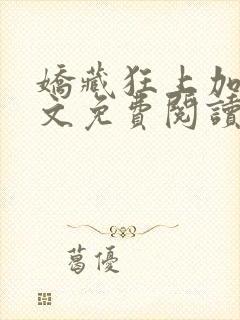 嬌藏狂上加
文免費閱讀
葛優